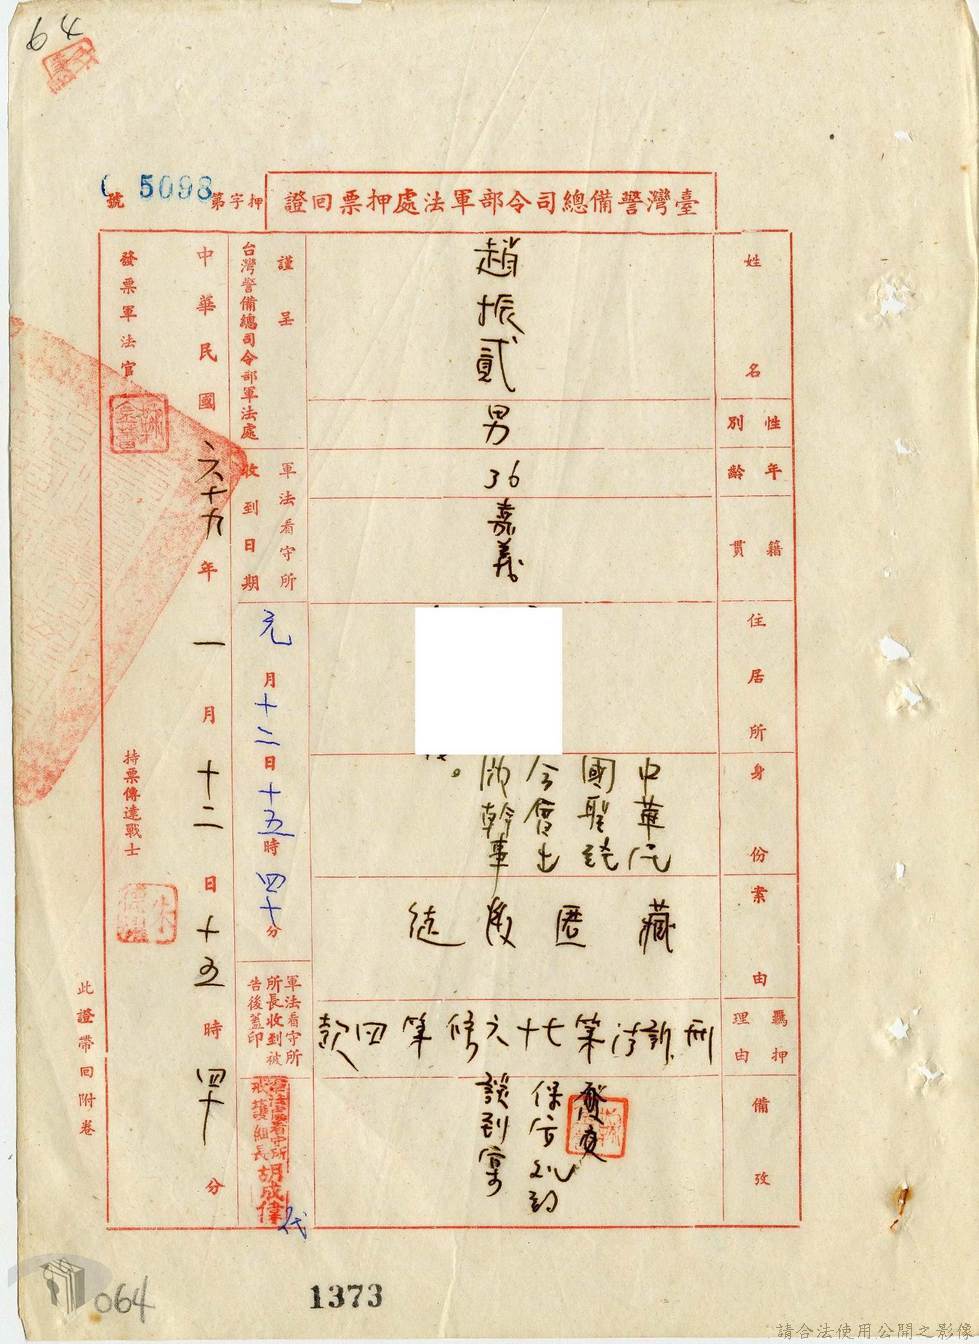 64
臺灣警備總司令部軍法處押票回證
押字第
5098
號
姓名
趙振貳
性別
男
年齡
36
籍貫
嘉義
住居所
身份
中華民
國聖說
今會出
版幹事
案由
藏匿叛徒
羈押理由
刑訴法第七十六條第四款
備攷
發交
保安處約
談到案
謹呈
台灣警備總司令部軍法處
軍法看守所
收到日期
元月十二日十五時四十分
軍法看守所
所長收到被
告後蓋印
軍法看守所
戒護組長胡成偉
代
中華民國六十九年一月十二日十五時四十分
發票軍法官
持票傳達戰士
此證帶回附卷
064
1373
請合法使用公開之影像